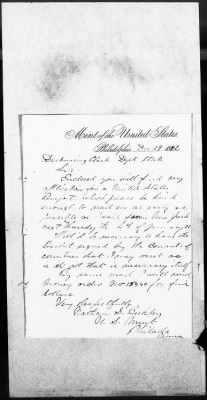 Mint of the United States
Philadelphia, Dec 12, 1882
Disbursing Clerk Dept State
Sir:
Enclosed you will find my
application for a United States
Passport, which please be kind
enough to mail me as early as
possible as I sail from New York
next Thursday the
Will it be necessary to have the
passport signed by the Consuls of
countries that I may visit as
I did get that is necessary
by same mail I will send
money order No 18440 for five
dollars
Very Respectfully
U. S. Mint
Philada
Penna